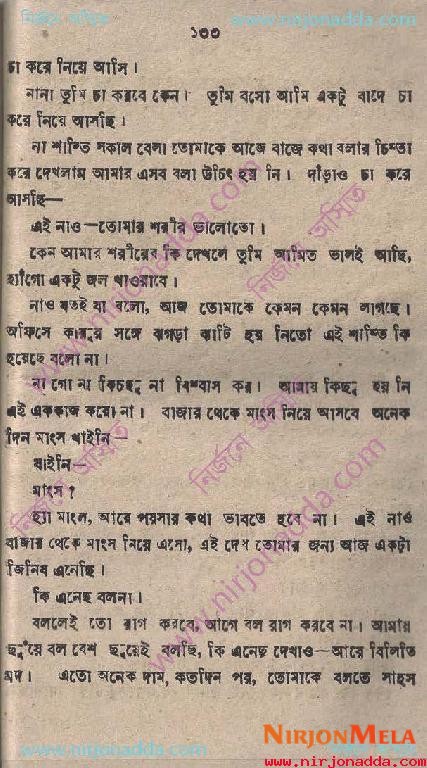 নির্জনে অস্মিতে www.nirjonadda.com
১৩৩
চা করে নিয়ে আসি।
নানা তুমি চা করবে কেন। তুমি বসো আমি একটু বাদে চা
করে নিয়ে আসছি।
না শান্তি সকাল বেলা তোমাকে আজে বাজে কথা বলার চিন্তা
করে দেখলাম আমার এসব বলা উচিৎ হয় নি। দাঁড়াও চা করে
আসছি—
এই নাও—তোমার শরীর ভালোতো।
কেন আমার শরীরের কি দেখলে তুমি আমিত ভালই আছি,
হ্যাঁগো একটু জল খাওয়াবে।
নাও যতই যা বলো, আজ তোমাকে কেমন কেমন লাগছে।
অফিসে কারুর সঙ্গে ঝগড়া ঝাটি হয় নিতো এই শান্তি কি
হয়েছে বলো না।
না গো না কিচ্ছু না বিশ্বাস কর। আমার কিছু হয় নি
এই এককাজ করো না। বাজার থেকে মাংস নিয়ে আসবে অনেক
দিন মাংস খাইনি—
যাইনি—
মাংস?
হ্যা মাংস, আরে পয়সার কথা ভাবতে হবে না। এই নাও
বাজার থেকে মাংস নিয়ে এসো, এই দেখ তোমার জন্য আজ একটা
জিনিষ এনেছি।
কি এনেছ বলনা।
বললেই তো রাগ করবে, আগে বল রাগ করবে না। আমায়
ছুঁয়ে বল বেশ ছুয়েই বলছি, কি এনেছ দেখাও—আরে বিলিতি
মদ। এতো অনেক দাম, কতদিন পর, তোমাকে বলতে সাহস
NIRJONMELA
www.nirjonadda.com
www.nirjonadda.com